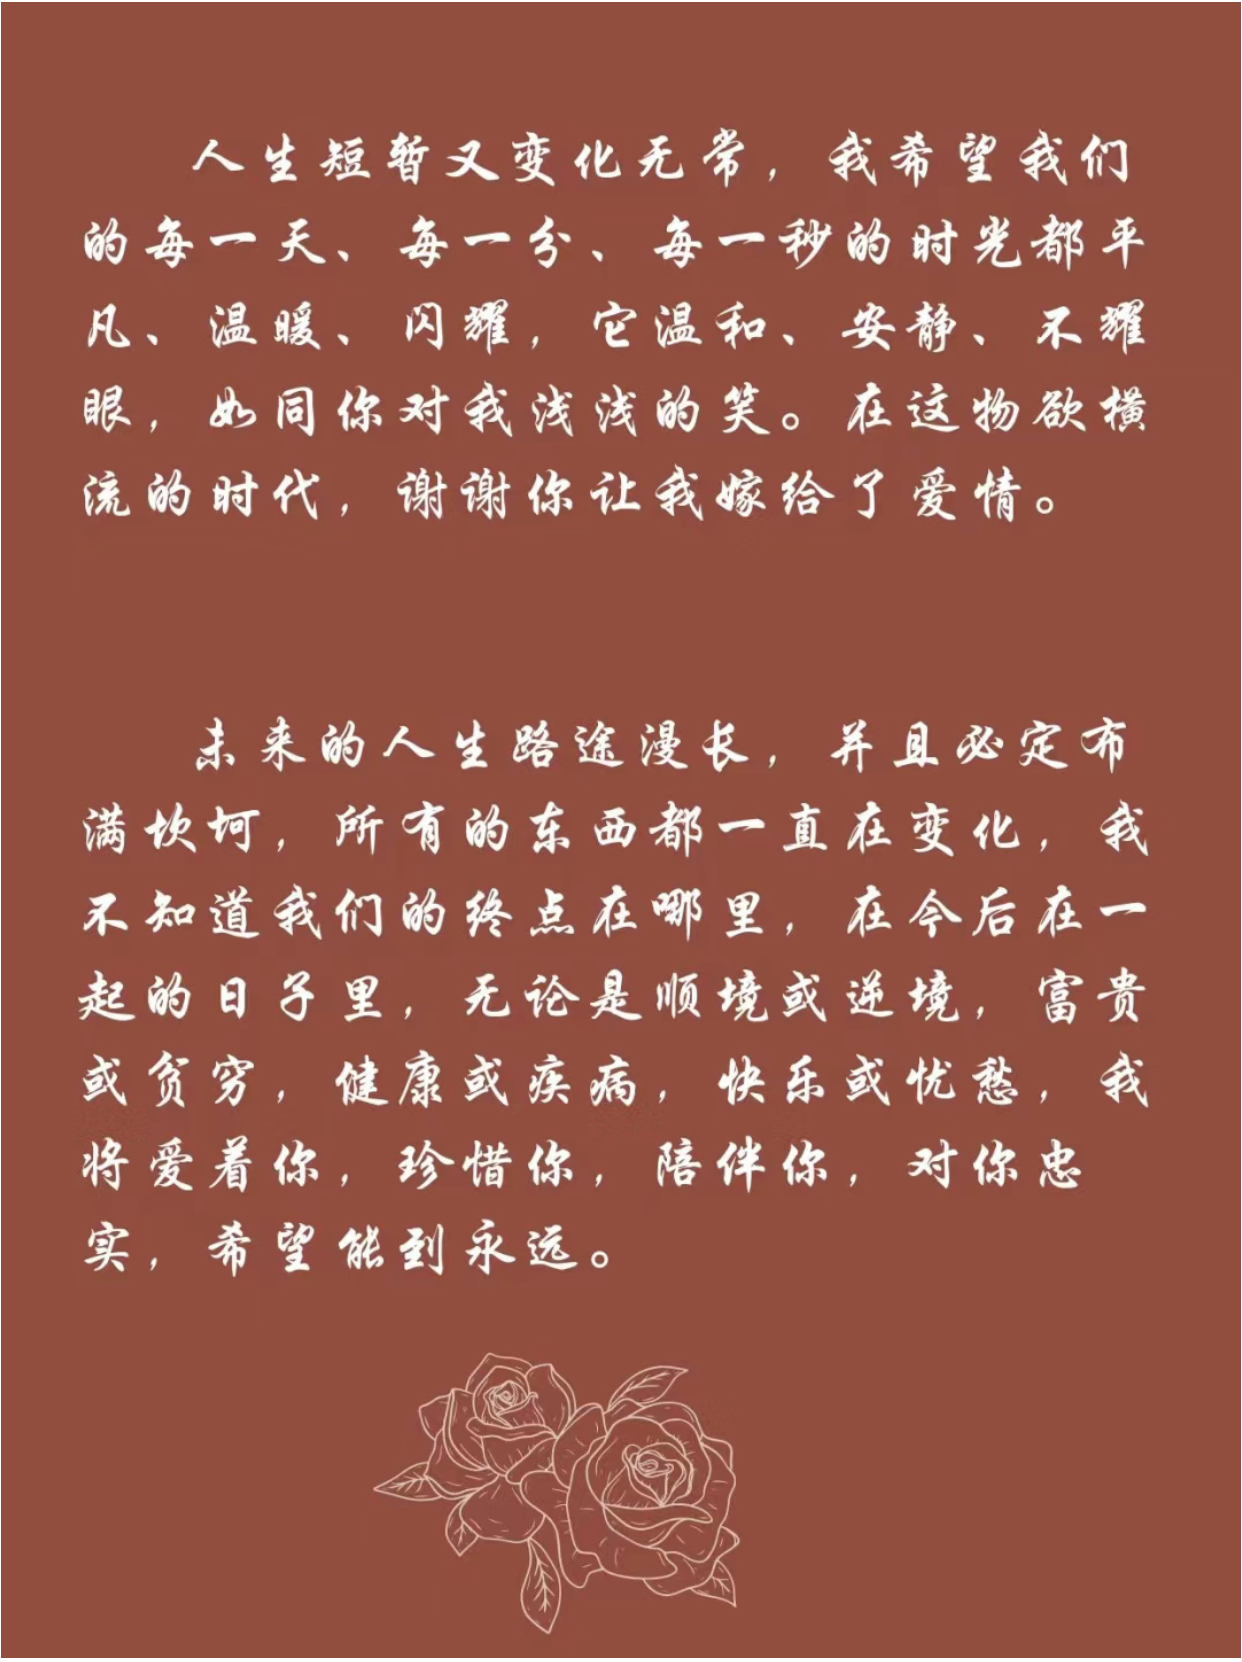 人生短暂又变化无常，我希望我们
的每一天、每一分、每一秒的时光都平
凡、温暖、闪耀，它温和、安静、不耀
眼，如同你对我浅浅的笑。在这物欲横
流的时代，谢谢你让我嫁给了爱情。
未来的人生路途漫长，并且必定布
满坎坷，所有的东西都一直在变化，我
不知道我们的终点在哪里，在今后在一
起的日子里，无论是顺境或逆境，富贵
或贫穷，健康或疾病，快乐或忧愁，我
将爱着你，珍惜你，陪伴你，对你忠
实，希望能到永远。